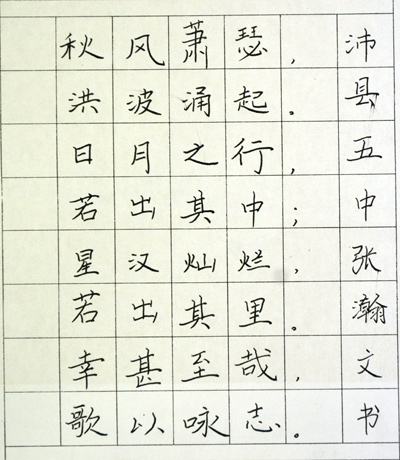 秋风萧瑟，
洪波涌起。
日月之行，
若出其中；
星汉灿烂，
若出其里。
幸甚至哉，
歌以咏志。
沛县五中张瀚文书